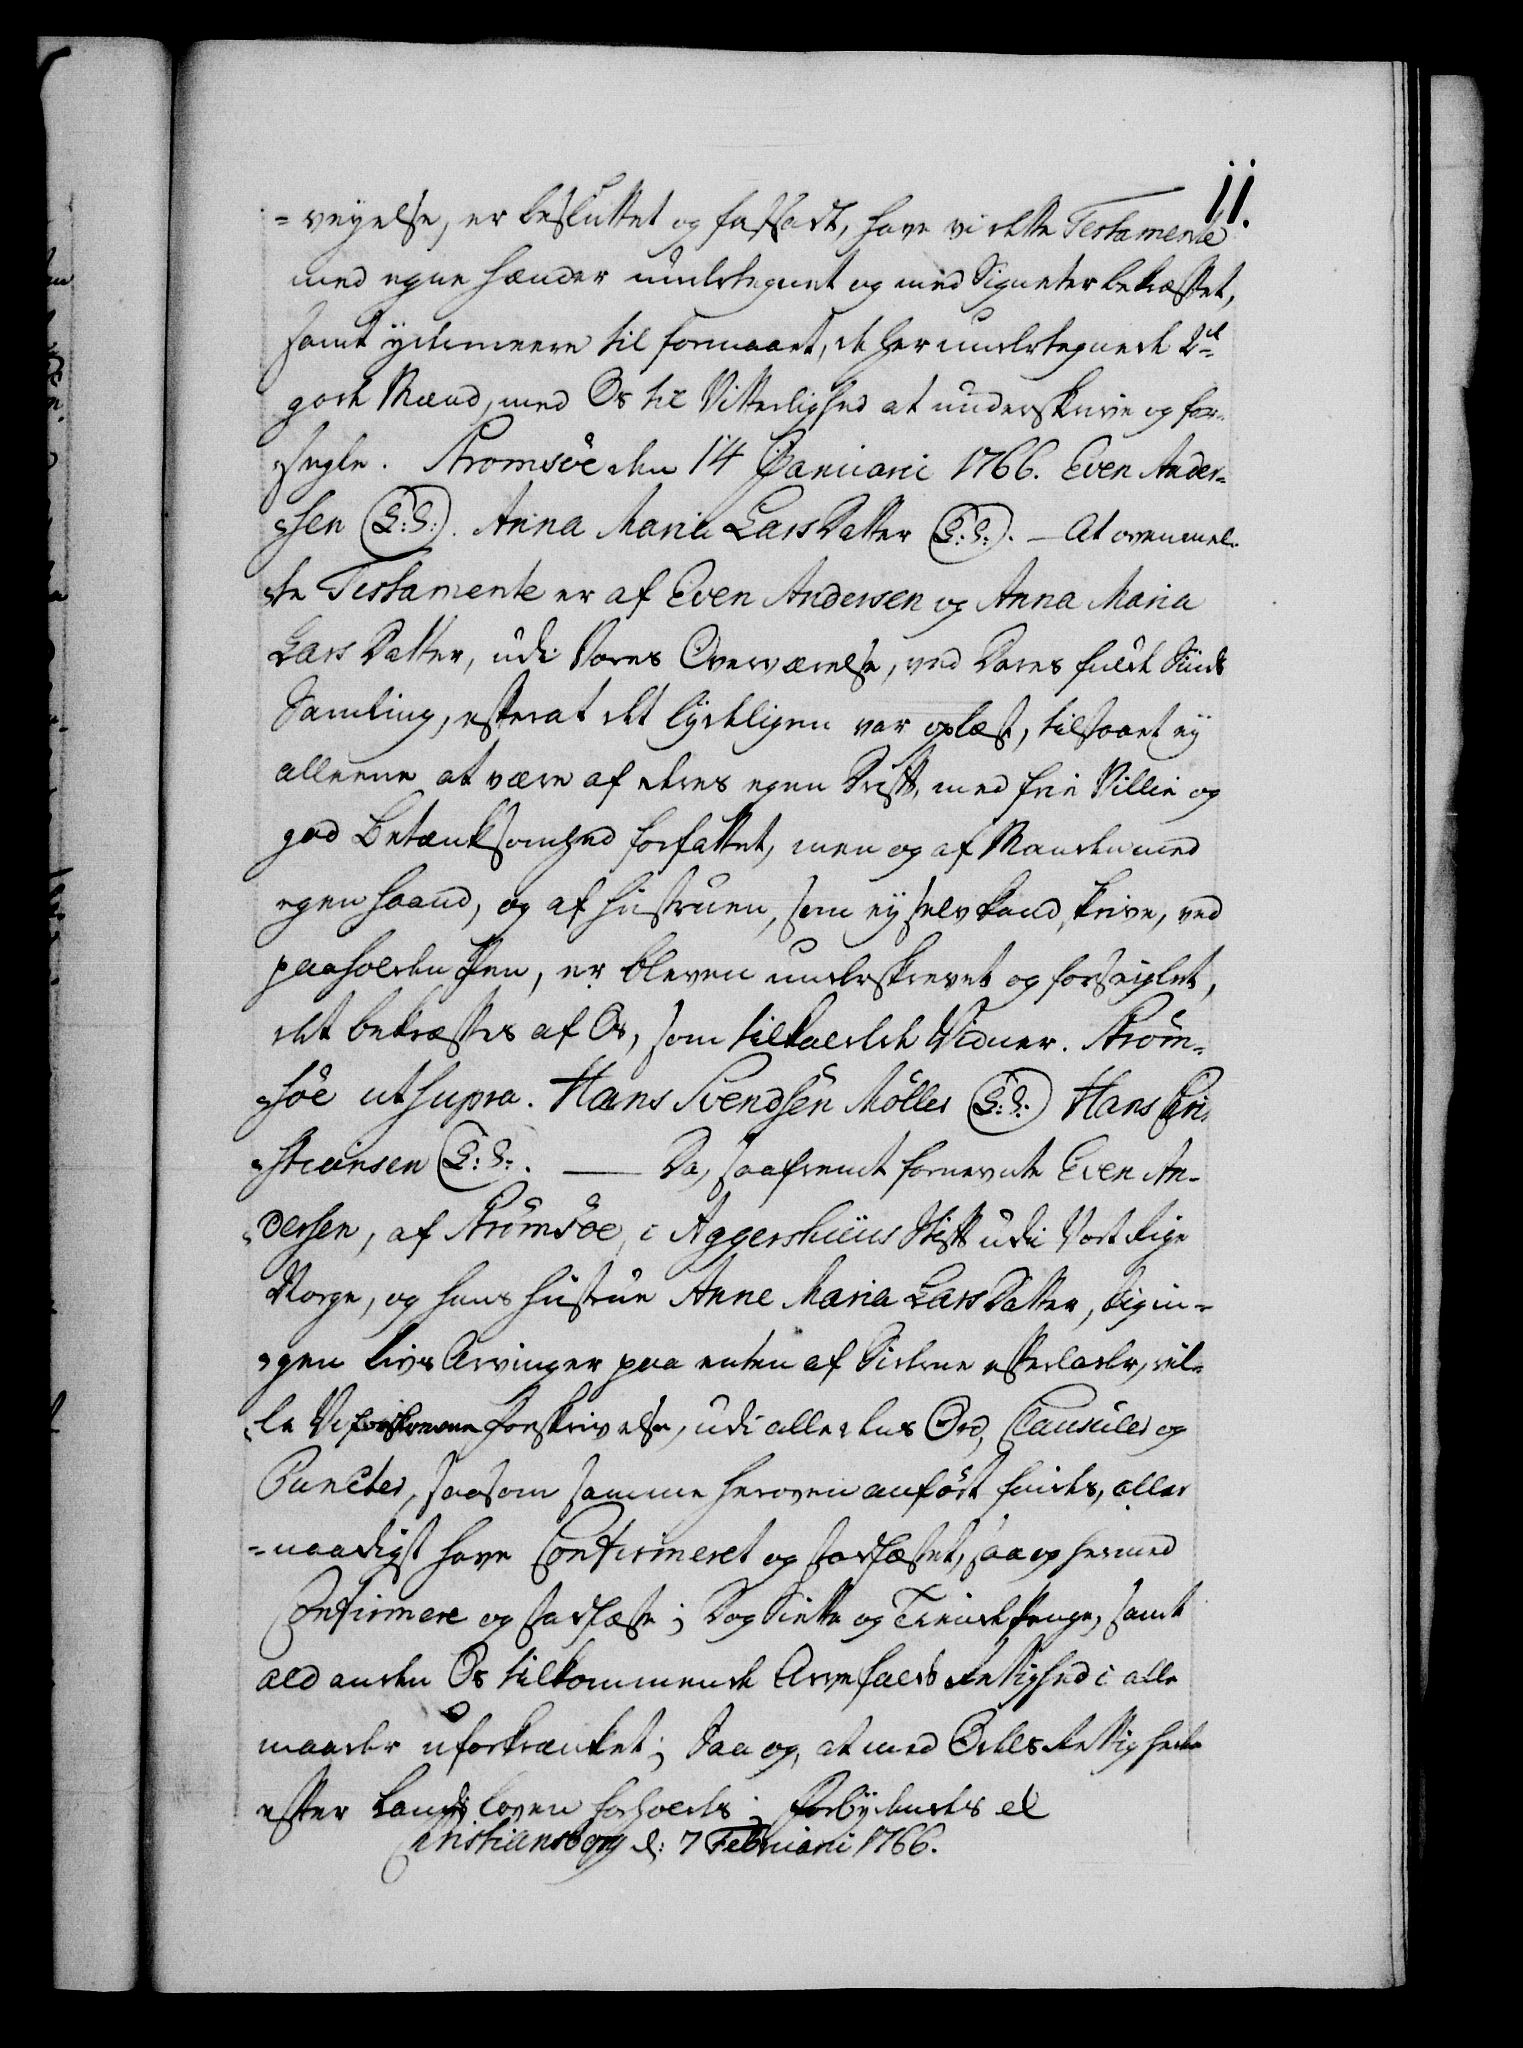 11.
=veyelse, er besluttet og fastsadt, have vi dette Testamente
med egne Hænder underteignet og med Signeter bekræftet,
samt ydermeere til formaaet, de her undertegnede 2de
gode Mænd, med Os til Vitterlighed at underskrive og for-
=segle. Strømsöe den 14 Januarii 1766. Even Ander-
=sen (L:S:). Anna Maria LarsDatter (L:S:). — At ovenmel-
=te Testamente er af Even Andersen og Anna Maria
Lars Datter, udi Vores Overværelse, ved Deres fulde Sinds
Samling, efterat det lydeligen var oplæst, tilstaaet ey
alleene at være af deres egen Drift, med frie Villie og
god Betænksomhed forfattet, men og af Manden med
egen Haand, og af Hustruen, som ey selv kand skrive, ved
paaholden Pen, er bleven underskrevet og forseiglet,
det bekræftes af Os, som tilkaldede Vidner. Ström-
=söe ut supra. Hans Svendsen Möller (L:S:) Hans Chri-
=stiansen (L:S:). — Da, saafremt fornevnte Even An-
=dersen, af Strömsöe, i Aggershuus Stift udi Vort Rige
Norge, og hans Hustrue Anne Maria Lars Datter, sig in-
=gen Livs Arvinger paa enten af Siderne efterlader, vil-
=le Vi forskrevne Forskrivelse, udi alle dens Ord, Clausuler og
Puncter, saasom samme heroven anfört findes, aller
=naadigst have Confirmeret og stadfæstet, saa og hermed
Confirmere og stadfæste; Dog Siette og Tiende Penge, samt
ald anden Os tilkommende Arvefalds Rettighed i alle
maader uforkrænket; Saa og, at med Odels Rettighed
efter Lands Loven forholdes; Forbydendes etc
Christiansborg d: 7 Februarii 1766.